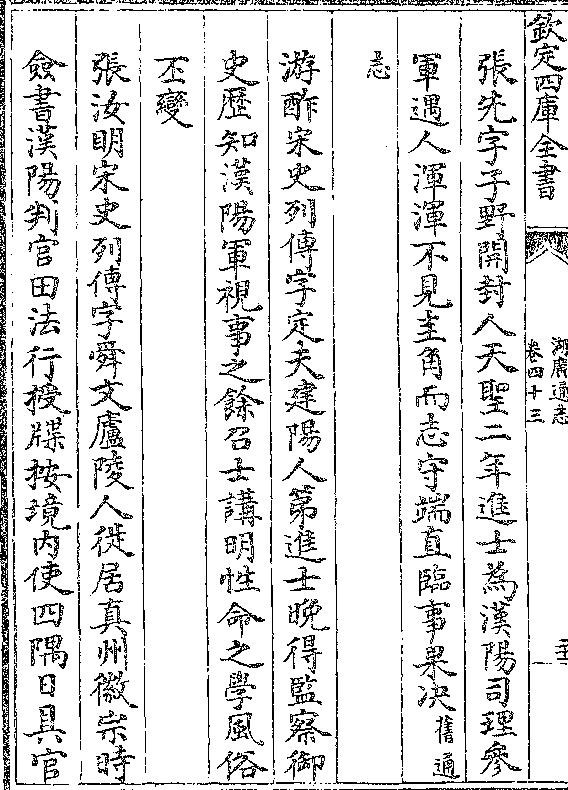 欽定四庫全書
湖廣通志
卷四十三
張先字子野開封人天聖二年進士為漢陽司理參
軍遇人渾渾不見圭角而志守端直臨事果決舊通
志
游酢宋史列傳字定夫建陽人第進士晚得監察御
史歷知漢陽軍視事之餘召士講明性命之學風俗
丕變
張汝明宋史列傳字舜文廬陵人徙居真州徽宗時
僉書漢陽判官田法行授牒按境內使四隅日具官